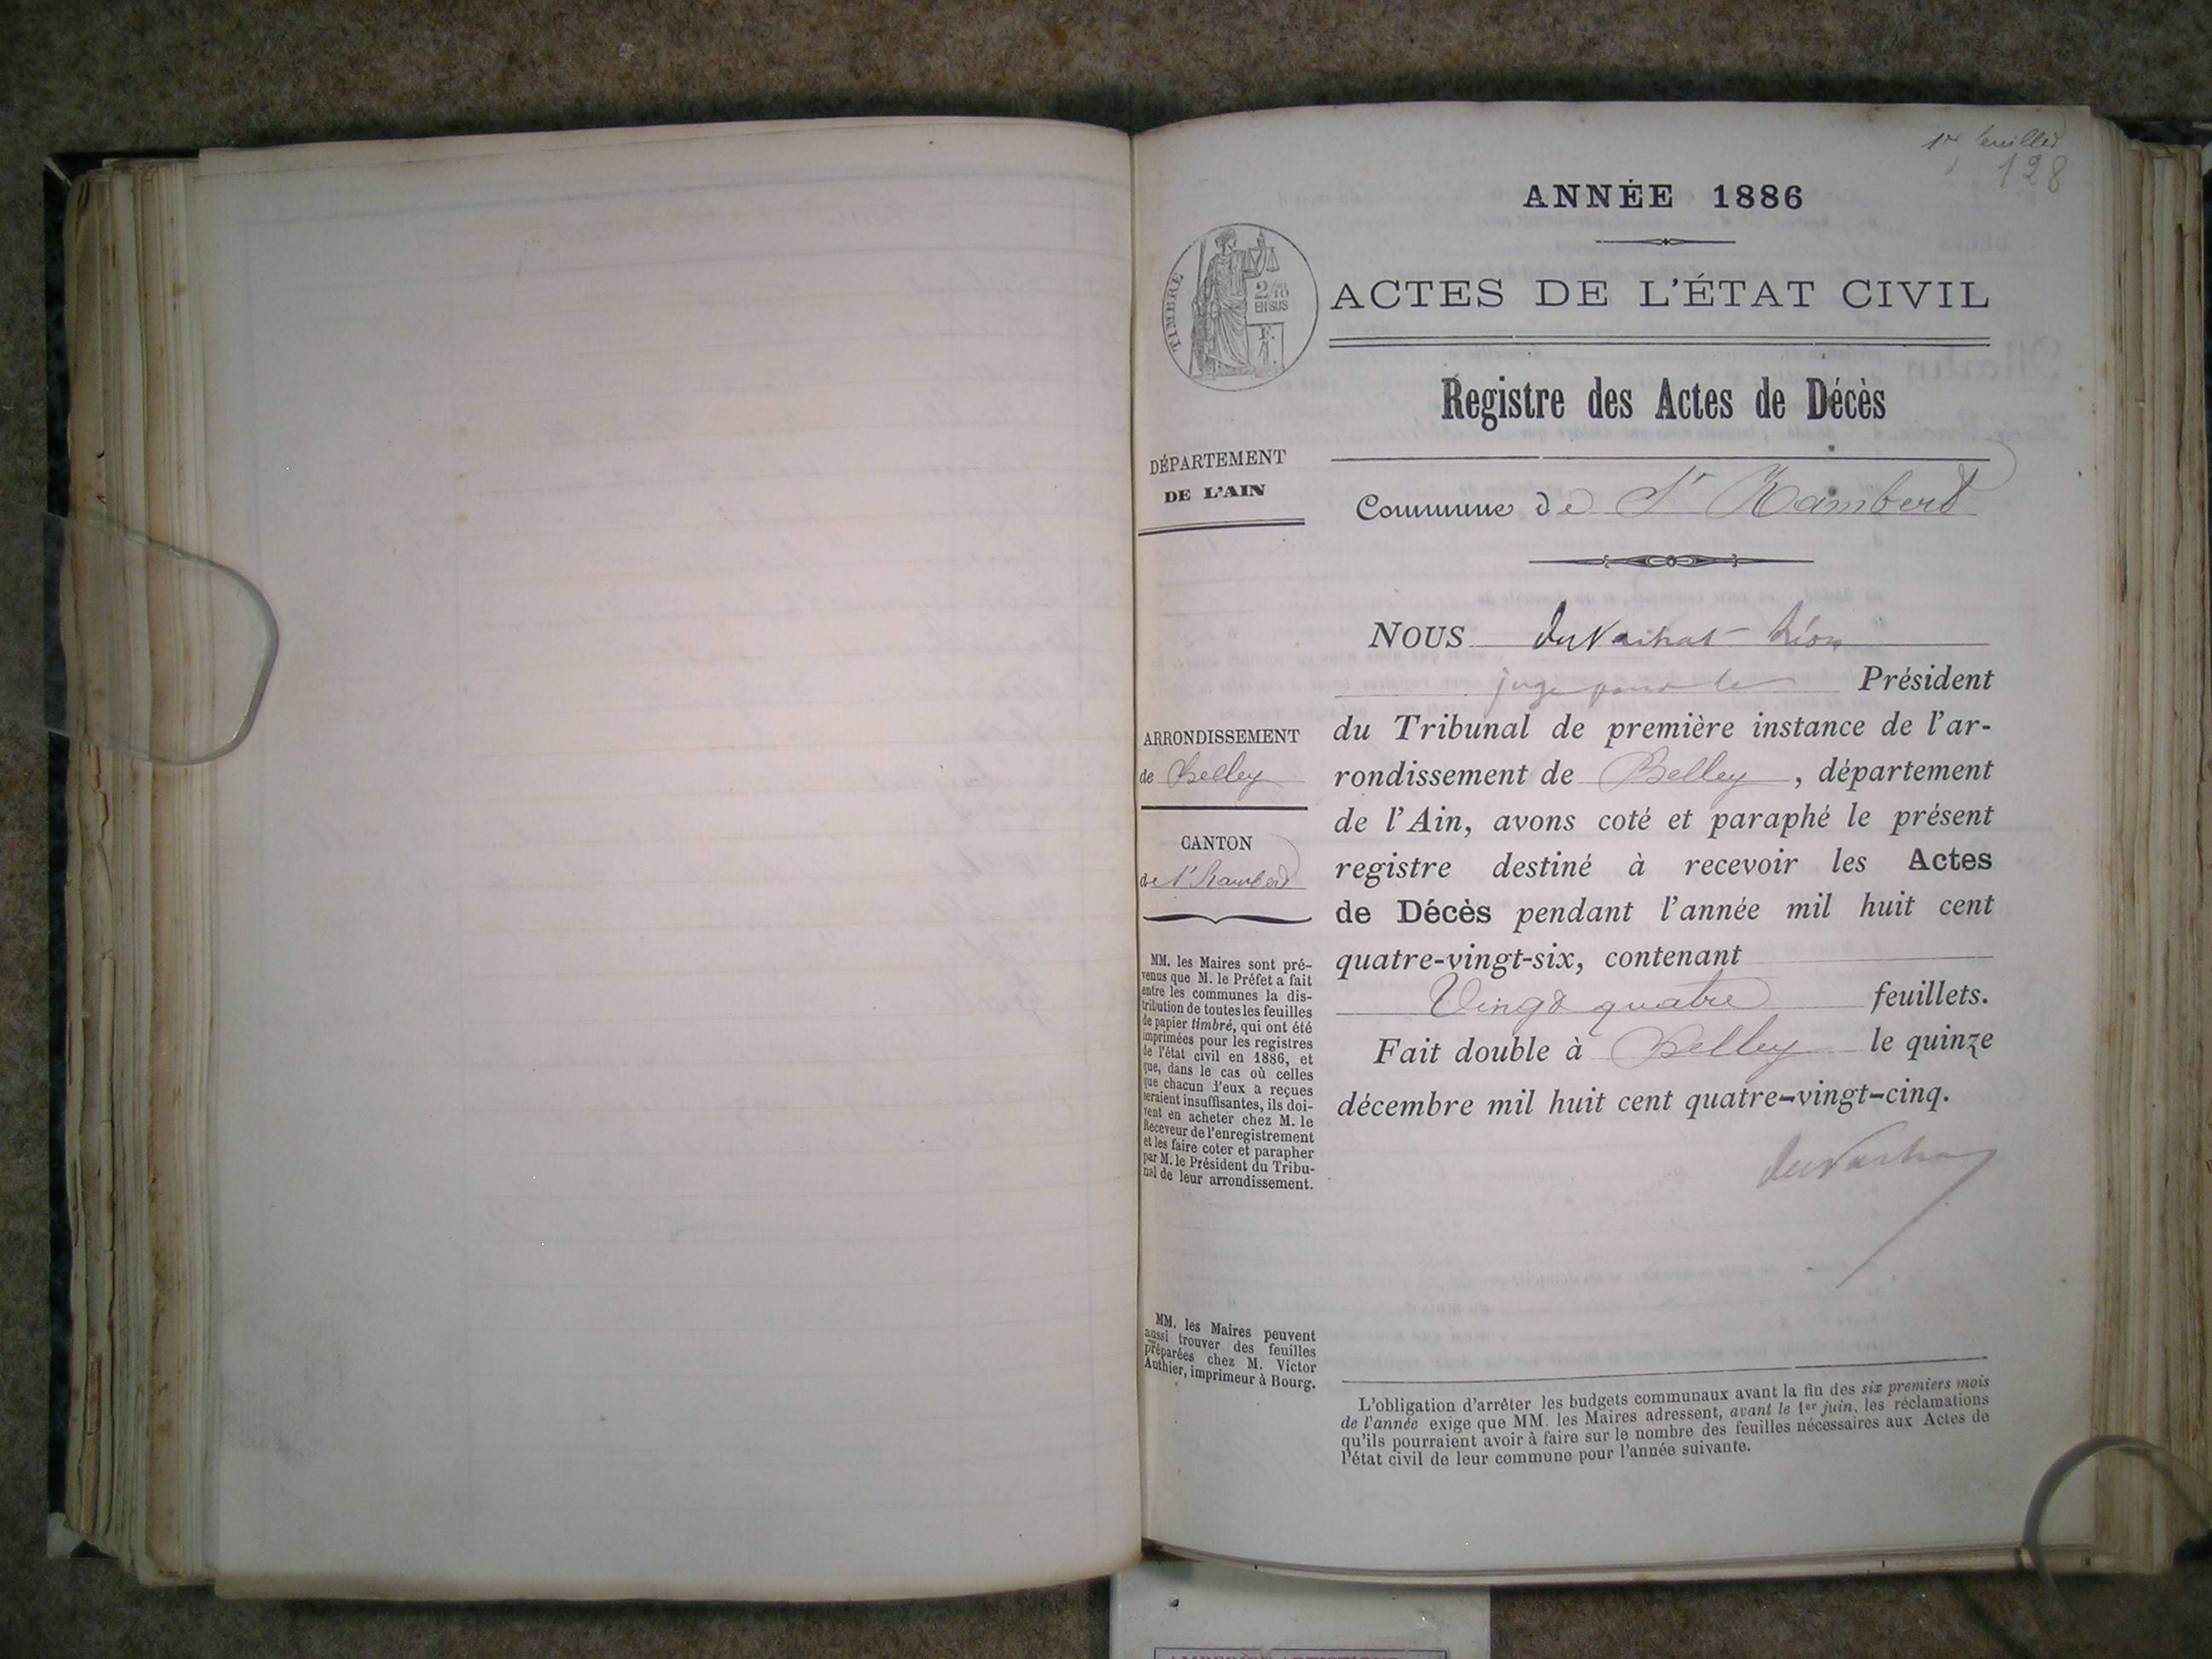 1er feuillet
128
ANNÉE 1886
TIMBRE
2/10
EN SUS
F.
1
ACTES DE L'ÉTAT CIVIL
Registre des Actes de Décès
DÉPARTEMENT
DE L'AIN
Commune de St Rambert
NOUS Léon
juge pour le Président
ARRONDISSEMENT
de Belley
du Tribunal de première instance de l'ar-
rondissement de Belley, département
de l'Ain, avons coté et paraphé le présent
registre destiné à recevoir les Actes
de Décès pendant l'année mil huit cent
quatre-vingt-six, contenant
Vingt quatre feuillets.
Fait double à Belley le quinze
décembre mil huit cent quatre-vingt-cinq.
CANTON
de St Rambert
MM. les Maires sont pré-
venus que M. le Préfet a fait
entre les communes la dis-
tribution de toutes les feuilles
de papier timbré, qui ont été
imprimées pour les registres
de l'état civil en 1886, et
que, dans le cas où celles
que chacun d'eux a reçues
seraient insuffisantes, ils doi-
vent en acheter chez M. le
Receveur de l'enregistrement
et les faire coter et parapher
par M. le Président du Tribu-
nal de leur arrondissement.
MM. les Maires peuvent
aussi trouver des feuilles
préparées chez M. Victor
Authier, imprimeur à Bourg.
L'obligation d'arrêter les budgets communaux avant la fin des six premiers mois
de l'année exige que MM. les Maires adressent, avant le 1er juin, les réclamations
qu'ils pourraient avoir à faire sur le nombre des feuilles nécessaires aux Actes de
l'état civil de leur commune pour l'année suivante.